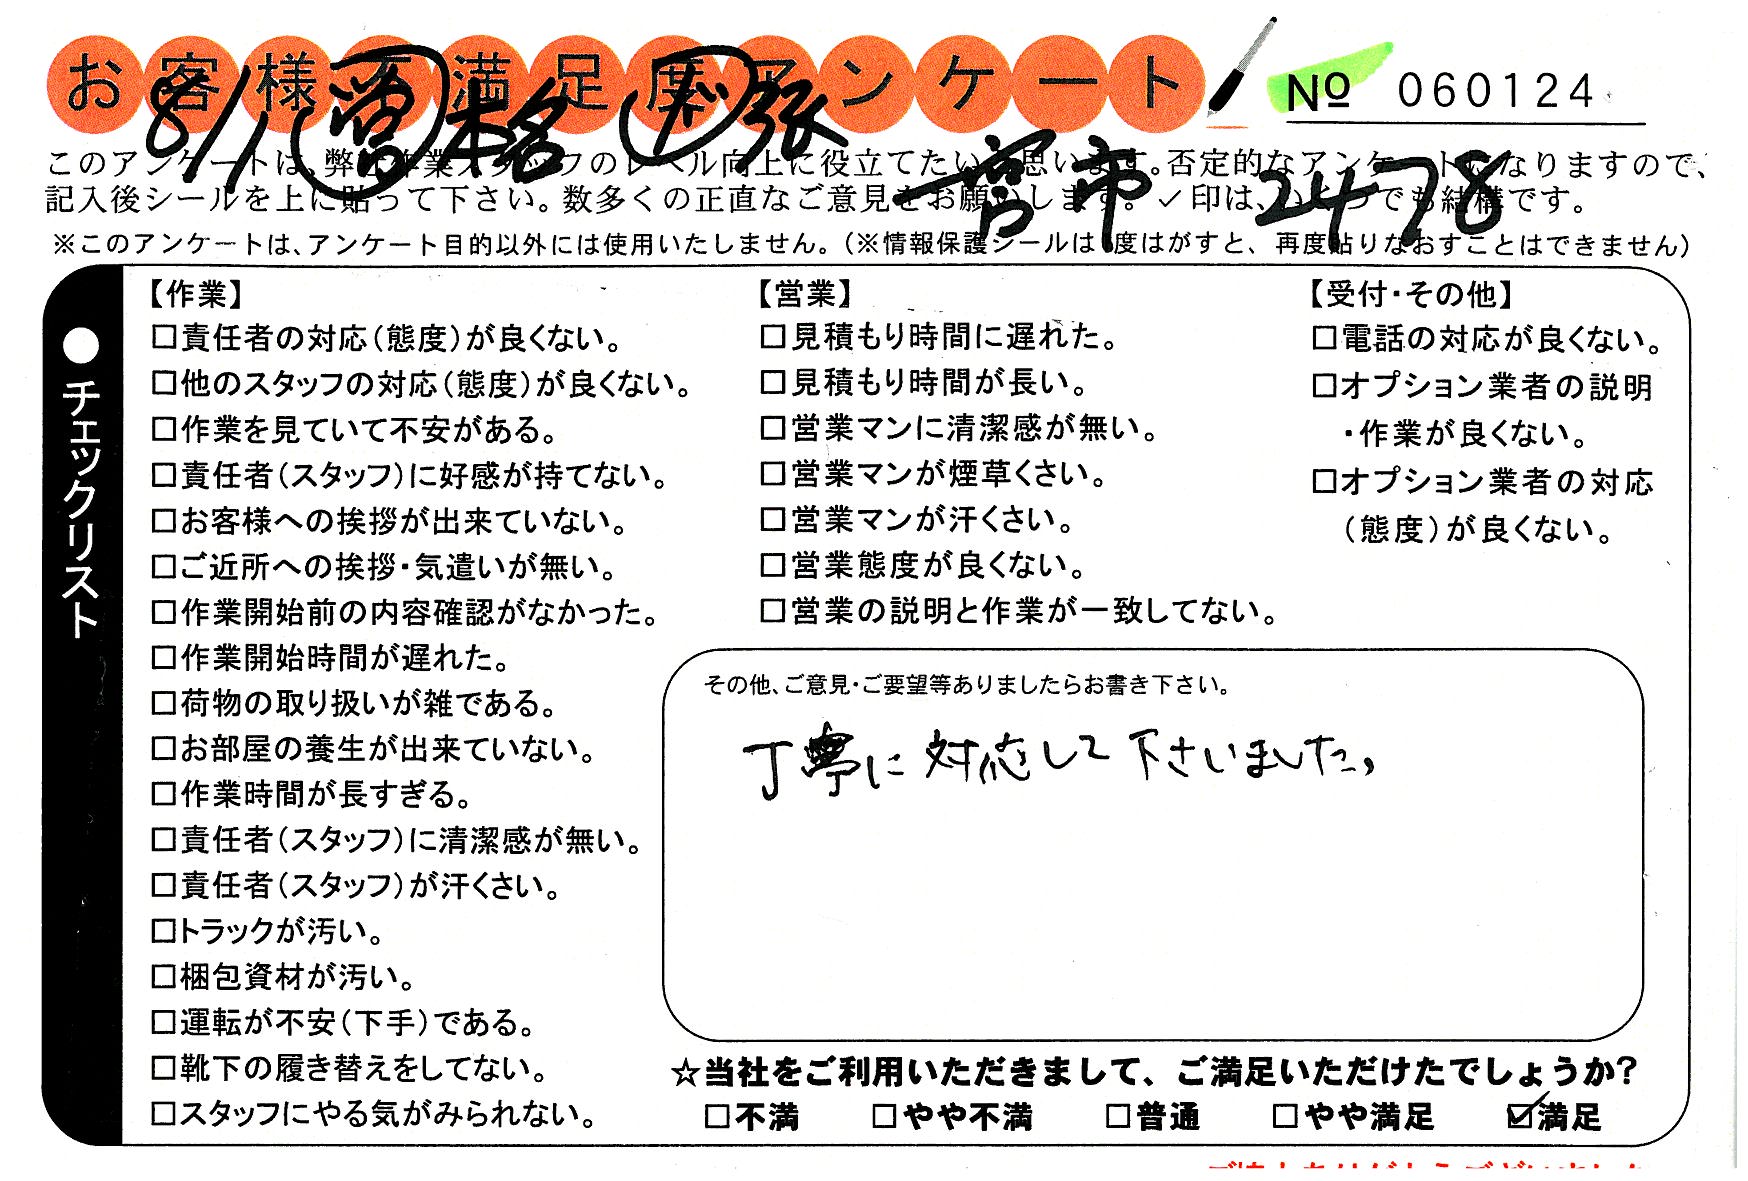 お客様満足度アンケート
No 060124
8/1 営 本名 作 張
一宮市 2478
このアンケートは、弊社作業スタッフのレベル向上に役立てたいと思います。否定的なアンケートになりますので、
記入後シールを上に貼って下さい。数多くの正直なご意見をお願いします。✓印は、いくつでも結構です。
※このアンケートは、アンケート目的以外には使用いたしません。(※情報保護シールは1度はがすと、再度貼りなおすことはできません)
●チェックリスト
【作業】
□責任者の対応(態度)が良くない。
□他のスタッフの対応(態度)が良くない。
□作業を見ていて不安がある。
□責任者(スタッフ)に好感が持てない。
□お客様への挨拶が出来ていない。
□ご近所への挨拶・気遣いが無い。
□作業開始前の内容確認がなかった。
□作業開始時間が遅れた。
□荷物の取り扱いが雑である。
□お部屋の養生が出来ていない。
□作業時間が長すぎる。
□責任者(スタッフ)に清潔感が無い。
□責任者(スタッフ)が汗くさい。
□トラックが汚い。
□梱包資材が汚い。
□運転が不安(下手)である。
□靴下の履き替えをしてない。
□スタッフにやる気がみられない。
【営業】
□見積もり時間に遅れた。
□見積もり時間が長い。
□営業マンに清潔感が無い。
□営業マンが煙草くさい。
□営業マンが汗くさい。
□営業態度が良くない。
□営業の説明と作業が一致してない。
【受付・その他】
□電話の対応が良くない。
□オプション業者の説明
・作業が良くない。
□オプション業者の対応
(態度)が良くない。
その他、ご意見・ご要望等ありましたらお書き下さい。
丁寧に対応して下さいました。
☆当社をご利用いただきまして、ご満足いただけたでしょうか?
□不満 □やや不満 □普通 □やや満足 ☑満足